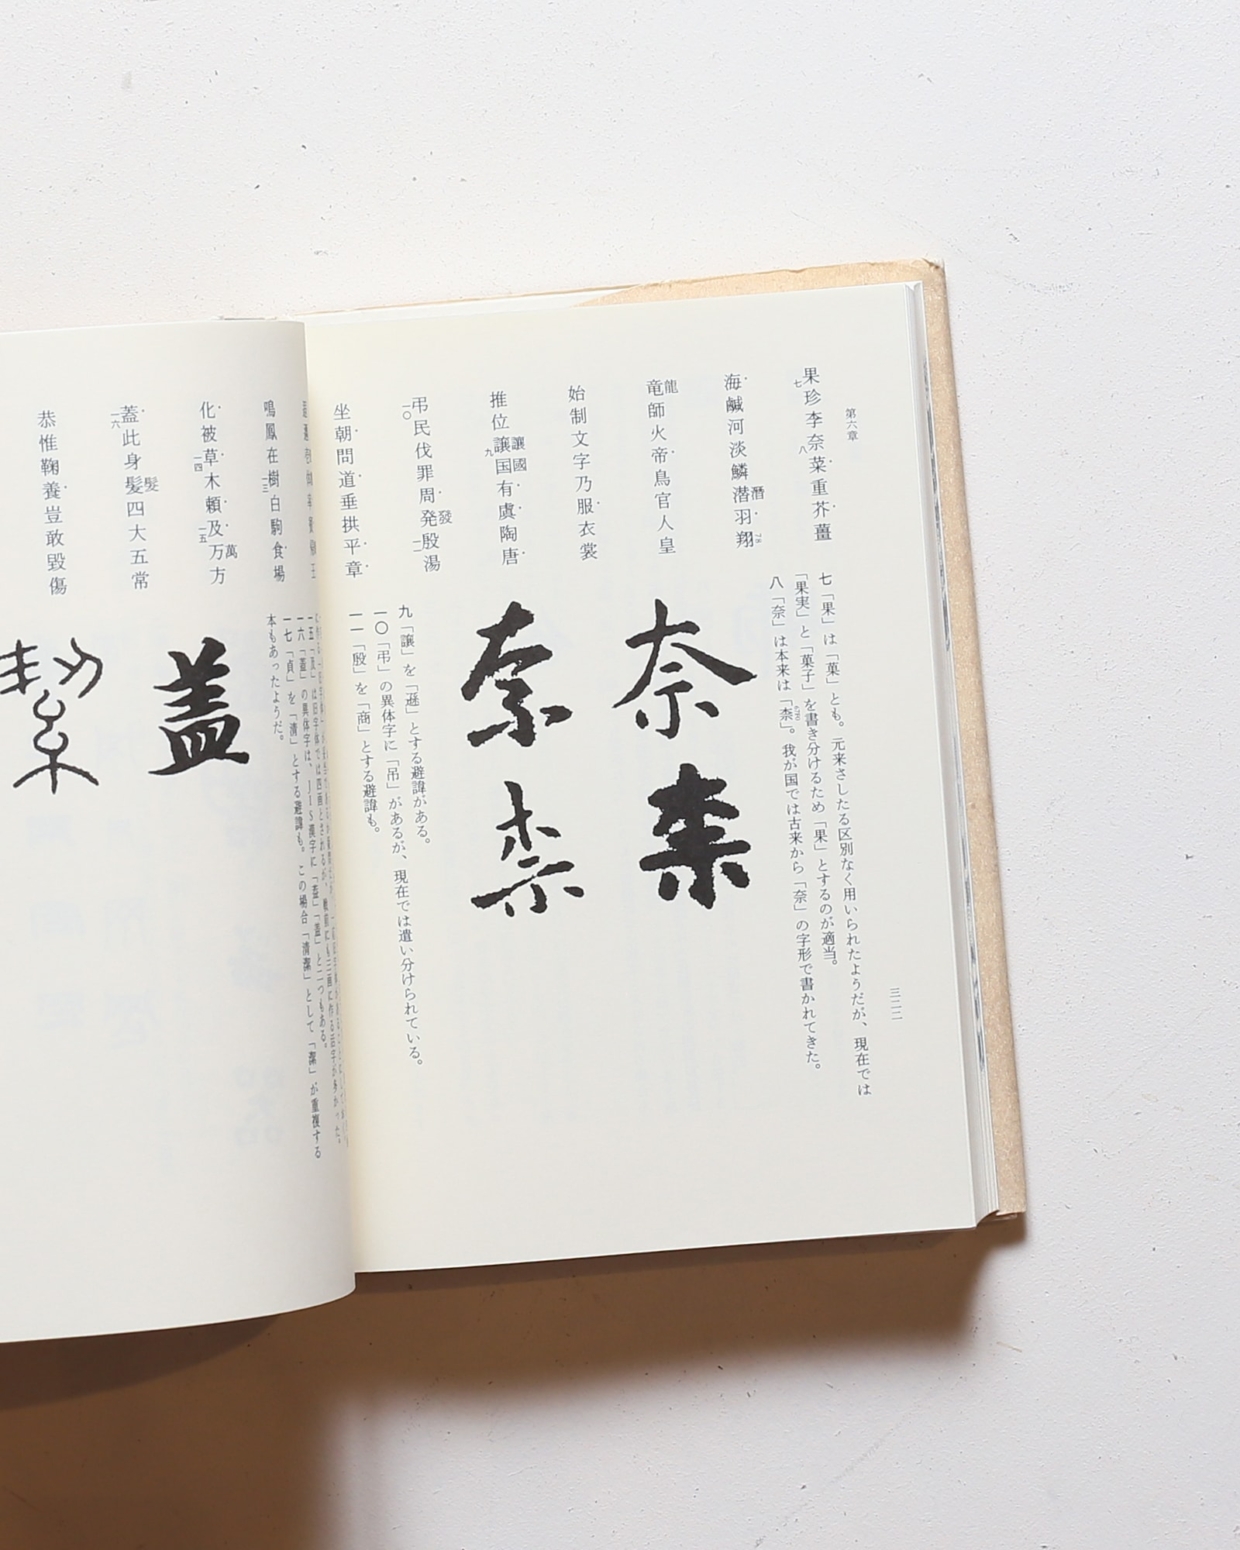 第六章
果珍李奈菜重芥薑
七
八
海鹹河淡鱗潜羽翔
潛
竜師火帝鳥官人皇
龍
始制文字乃服衣裳
推位譲国有虞陶唐
讓國
九
弔民伐罪周発殷湯
發
一〇
一一
坐朝問道垂拱平章
七「果」は「菓」とも。元来さしたる区別なく用いられたようだが、現在では
「果実」と「菓子」を書き分けるため「果」とするのが適当。
八「奈」は本来は「柰」。我が国では古来から「奈」の字形で書かれてきた。
奈
柰
奈
柰
九「譲」を「遜」とする避諱がある。
一〇「弔」の異体字に「吊」があるが、現在では遣い分けられている。
一一「殷」を「商」とする避諱も。
三二二
鳴鳳在樹白駒食場
一三
化被草木頼及万方
萬
一四
一五
蓋此身髪四大五常
髮
一六
恭惟鞠養豈敢毀傷
一五「及」は旧字体では四画とされるが、戦前にも三画に作る活字が多かった。
一六「蓋」の異体字は、JIS漢字に「葢」「盖」と二つもある。
一七「貞」を「清」とする避諱も。この場合「清潔」として「潔」が重複する
本もあったようだ。
蓋